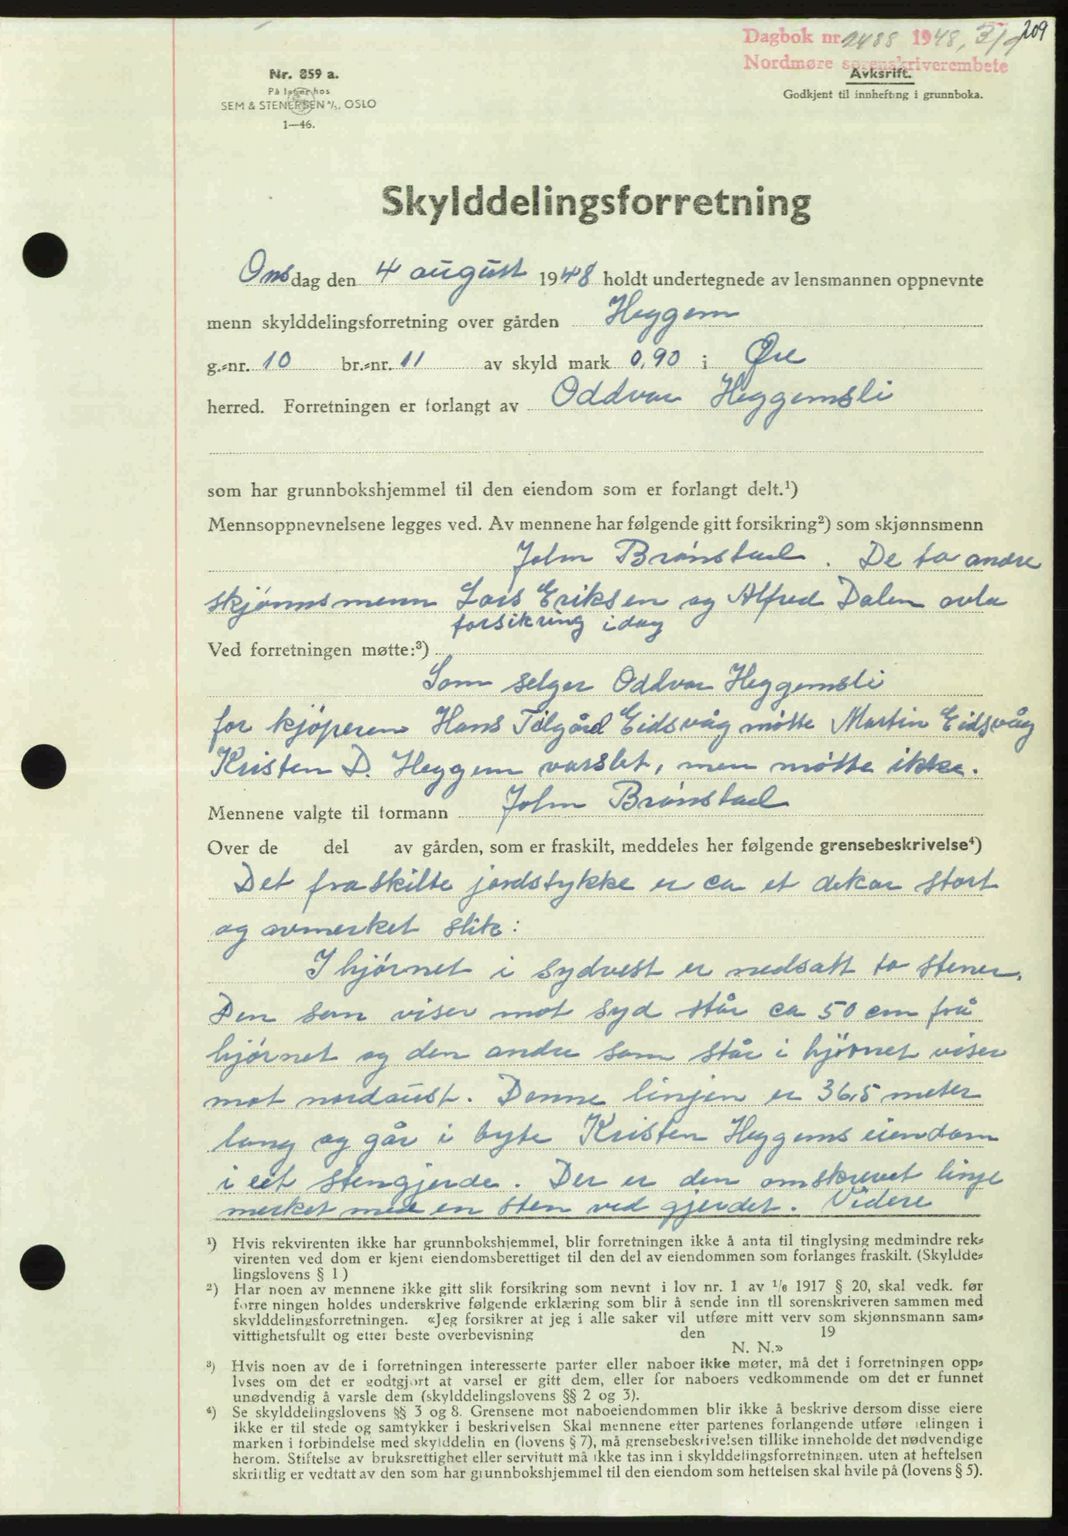 209
Dagbok nr. 2488 1948, 3/9
Nordmøre sorenskriverembete
Avksrift.
Godkjent til innhefting i grunnboka.
Nr. 859 a.
På lager hos
SEM & STENERSEN A/S, OSLO
1—46.
Skylddelingsforretning
Onsdag den 4 august 1948 holdt undertegnede av lensmannen oppnevnte
menn skylddelingsforretning over gården Heggem
g.=nr. 10 br.=nr. 11 av skyld mark 0,90 i Øre
herred. Forretningen er forlangt av Oddvar Heggemsli
som har grunnbokshjemmel til den eiendom som er forlangt delt.¹)
Mennsoppnevnelsene legges ved. Av mennene har følgende gitt forsikring²) som skjønnsmenn
John Brønstad. De to andre
skjønnsmenn Lars Eriksen og Alfred Dalen avla
forsikring idag
Ved forretningen møtte:³)
Som selger Oddvar Heggemsli
for kjøperen Hans Tølgård Eidsvåg møtte Martin Eidsvåg
Kristen D. Heggem varslet, men møtte ikke.
Mennene valgte til formann John Brønstad
Over de del av gården, som er fraskilt, meddeles her følgende grensebeskrivelse⁴)
Det fraskilte jordstykke er ca et dekar stort
og avmerket slik:
I hjørnet i sydvest er nedsatt to stener.
Den som viser mot syd står ca 50 cm frå
hjørnet og den andre som står i hjørnet viser
mot nordaust. Denne linjen er 36,5 meter
lang og går i byte Kristen Heggems eiendom
i eit stengjerde. Der er den omskrevet linje
merket med en sten ved gjerdet. Videre
¹) Hvis rekvirenten ikke har grunnbokshjemmel, blir forretningen ikke å anta til tinglysing medmindre rek=
virenten ved dom er kjent eiendomsberettiget til den del av eiendommen som forlanges fraskilt. (Skyldde=
lingslovens § 1)
²) Har noen av mennene ikke gitt slik forsikring som nevnt i lov nr. 1 av 1/6 1917 § 20, skal vedk. før
forretningen holdes underskrive følgende erklæring som blir å sende inn til sorenskriveren sammen med
skylddelingsforretningen. «Jeg forsikrer at jeg i alle saker vil utføre mitt verv som skjønnsmann sam=
vittighetsfullt og etter beste overbevisning den 19
N. N.»
³) Hvis noen av de i forretningen interesserte parter eller naboer ikke møter, må det i forretningen opp=
lyses om det er godtgjort at varsel er gitt dem, eller for naboers vedkommende om det er funnet
unødvendig å varsle dem (skylddelingslovens §§ 2 og 3).
⁴) Se skylddelingslovens §§ 3 og 8. Grensene mot naboeiendommen blir ikke å beskrive dersom disse eiere
ikke er til stede og samtykker i beskrivelsen Skal mennene etter partenes forlangende utføre delingen i
marken i forbindelse med skylddelin en (lovens § 7), må grensebeskrivelsen tillike inneholde det nødvendige
herom. Stiftelse av bruksrettighet eller servitutt må ikke tas inn i skylddelingsforretningen. uten at heftelsen
skriftlig er vedtatt av den som har grunnbokshjemmel til den eiendom som heftelsen skal hvile på (lovens § 5).